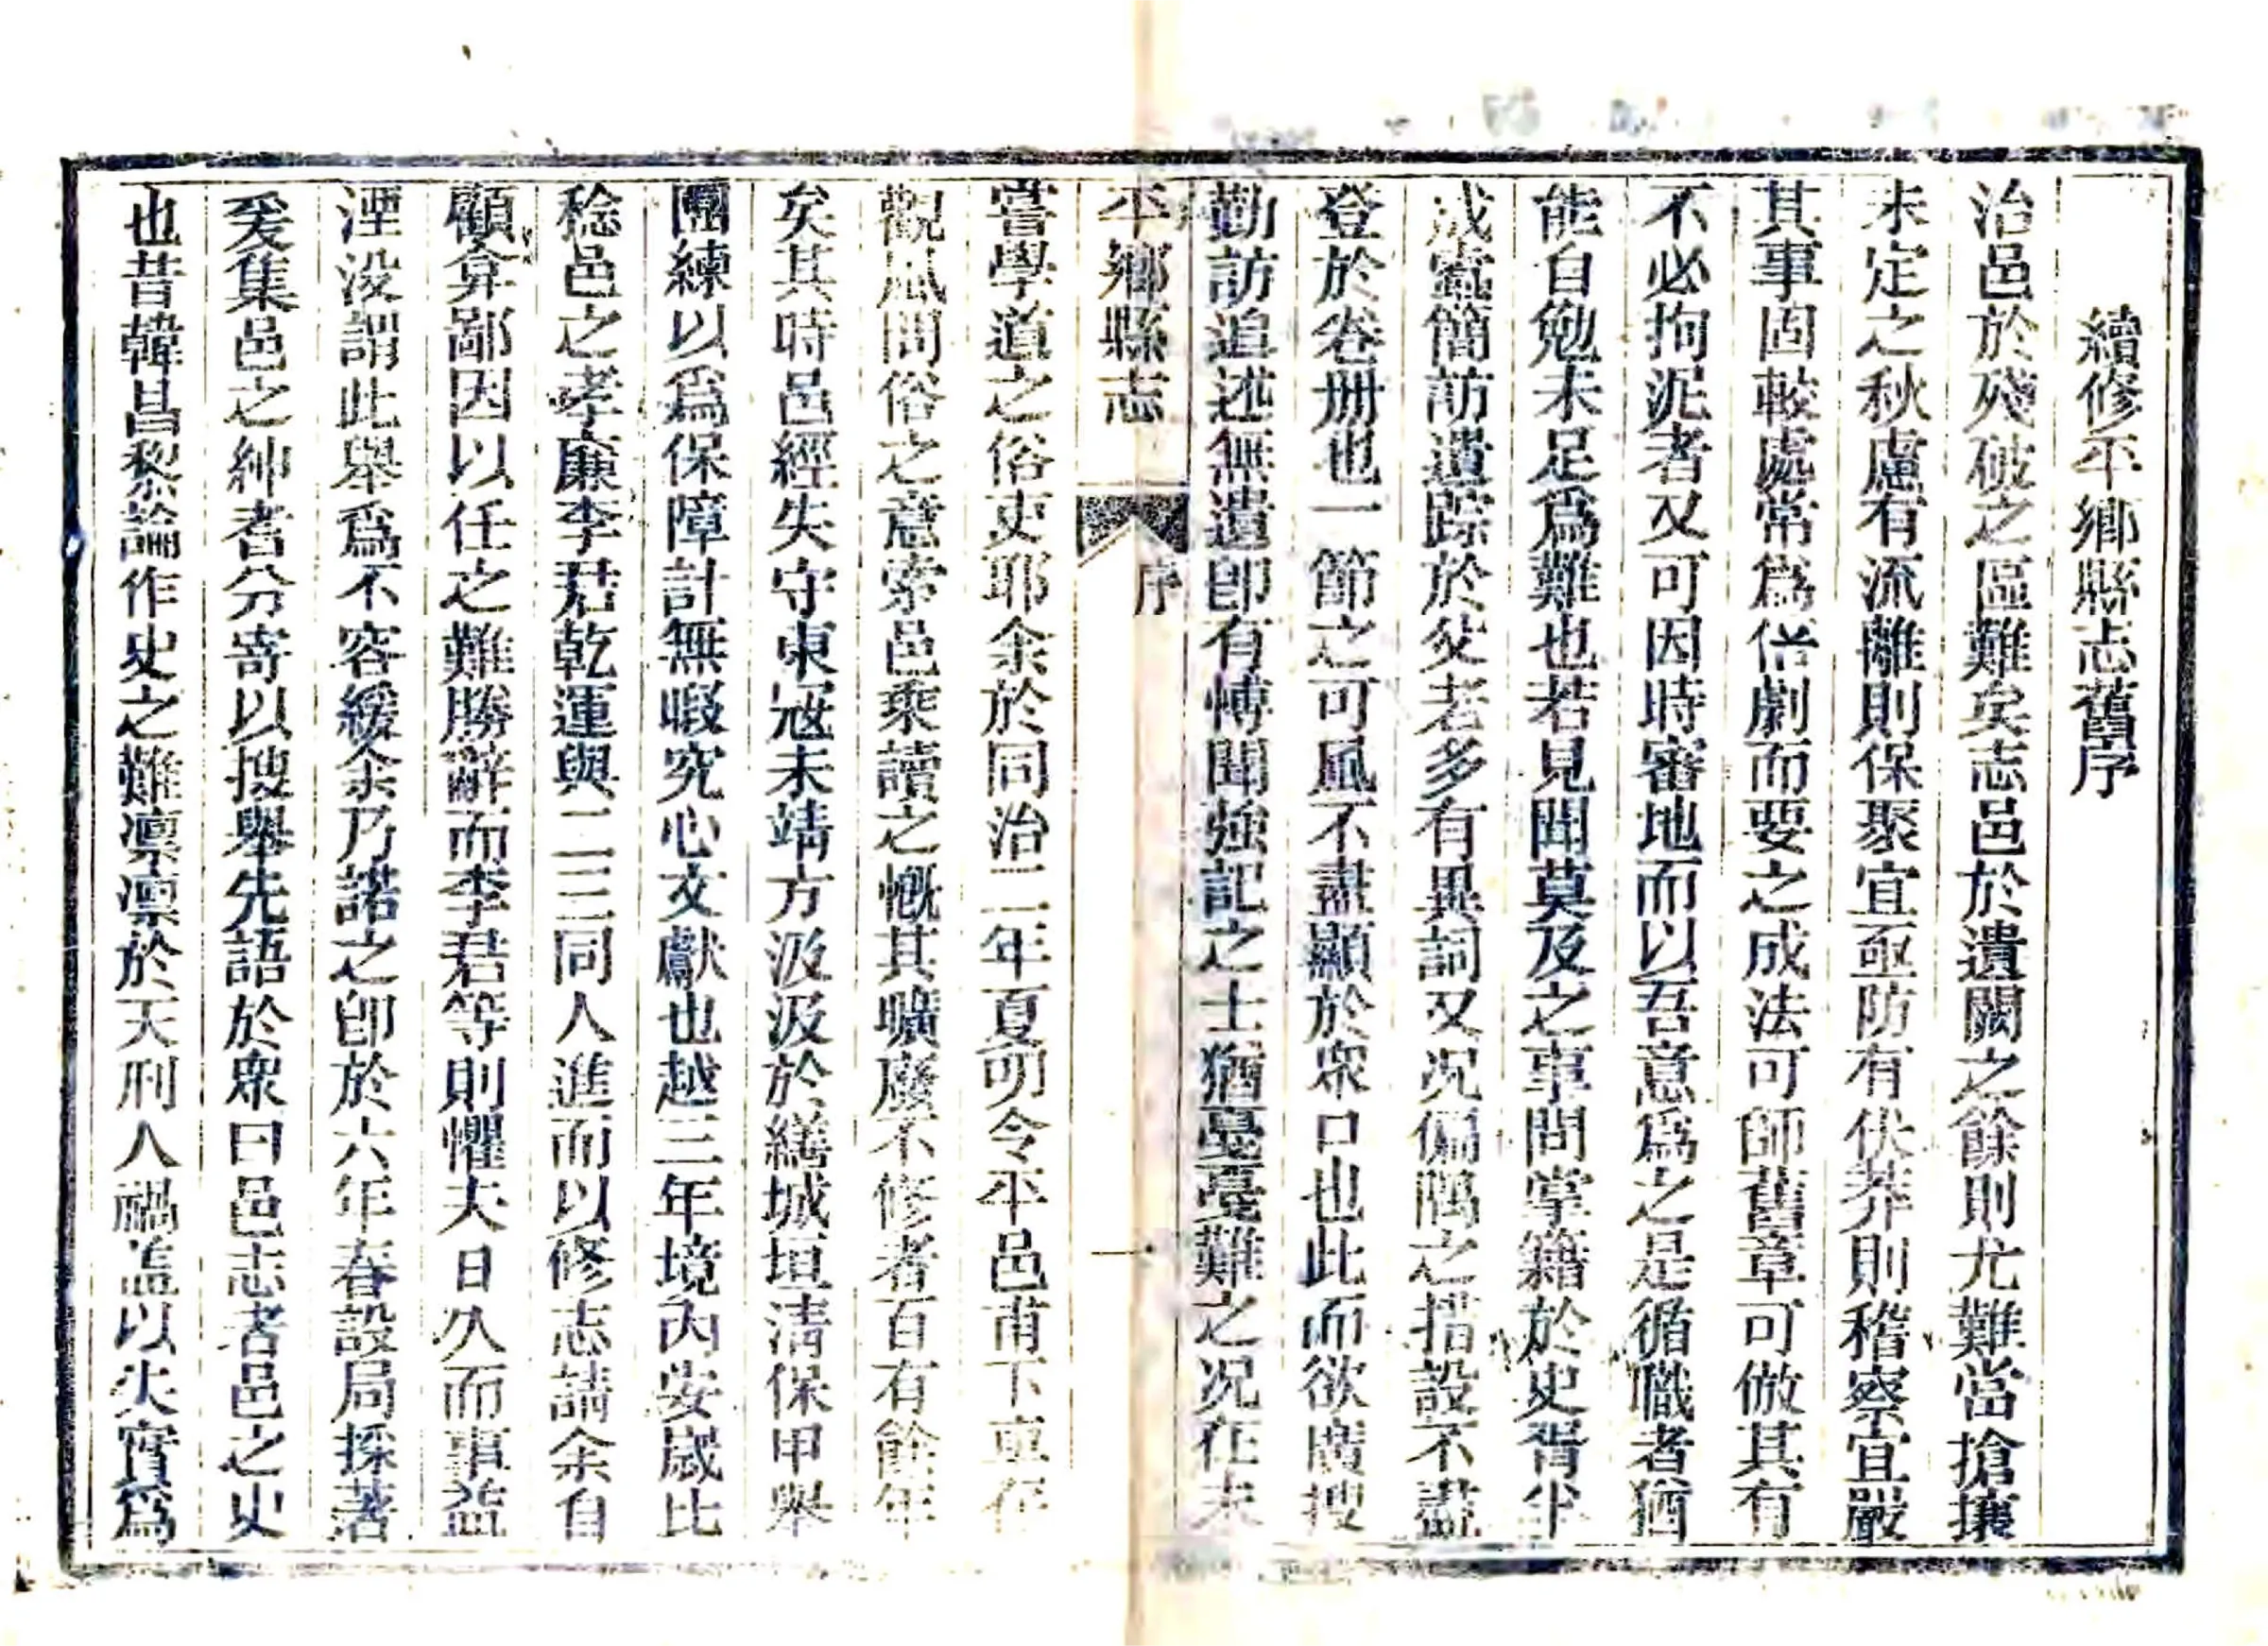 續修平鄉縣志舊序
治邑於殘破之區難矣志邑於遺闕之餘則尤難當搶攘
未定之秋慮有流離則保聚宜亟防有伏莽則稽察宜嚴
其事固較處常爲倍劇而要之成法可師舊章可倣其有
不必拘泥者又可因時審地而以吾意爲之是循職者猶
能自勉未足爲難也若見聞莫及之事問掌籍於史胥半
成蠹簡訪遺踪於父老多有異詞又况偏隅之措設不盡
登於卷册也一節之可風不盡顯於衆口也此而欲廣搜
勤訪追述無遺卽有博聞強記之士猶戛戛難之况在未
平鄉縣志
序
一
嘗學道之俗吏耶余於同治二年夏叨令平邑甫下車在
觀風問俗之意索邑乘讀之慨其曠廢不修者百有餘年
矣其時邑經失守東寇未靖方汲汲於繕城垣淸保甲舉
團練以爲保障計無暇究心文獻也越三年境內安歲比
稔邑之孝廉李君乾運與二三同人進而以修志請余自
顧弇鄙因以任之難勝辭而李君等則懼夫日久而事益
湮没謂此舉爲不容緩余乃諾之卽於六年春設局採著
爰集邑之紳耆分寄以搜舉先語於衆曰邑志者邑之史
也昔韓昌黎論作史之難凛凛於天刑人禍盖以失實爲